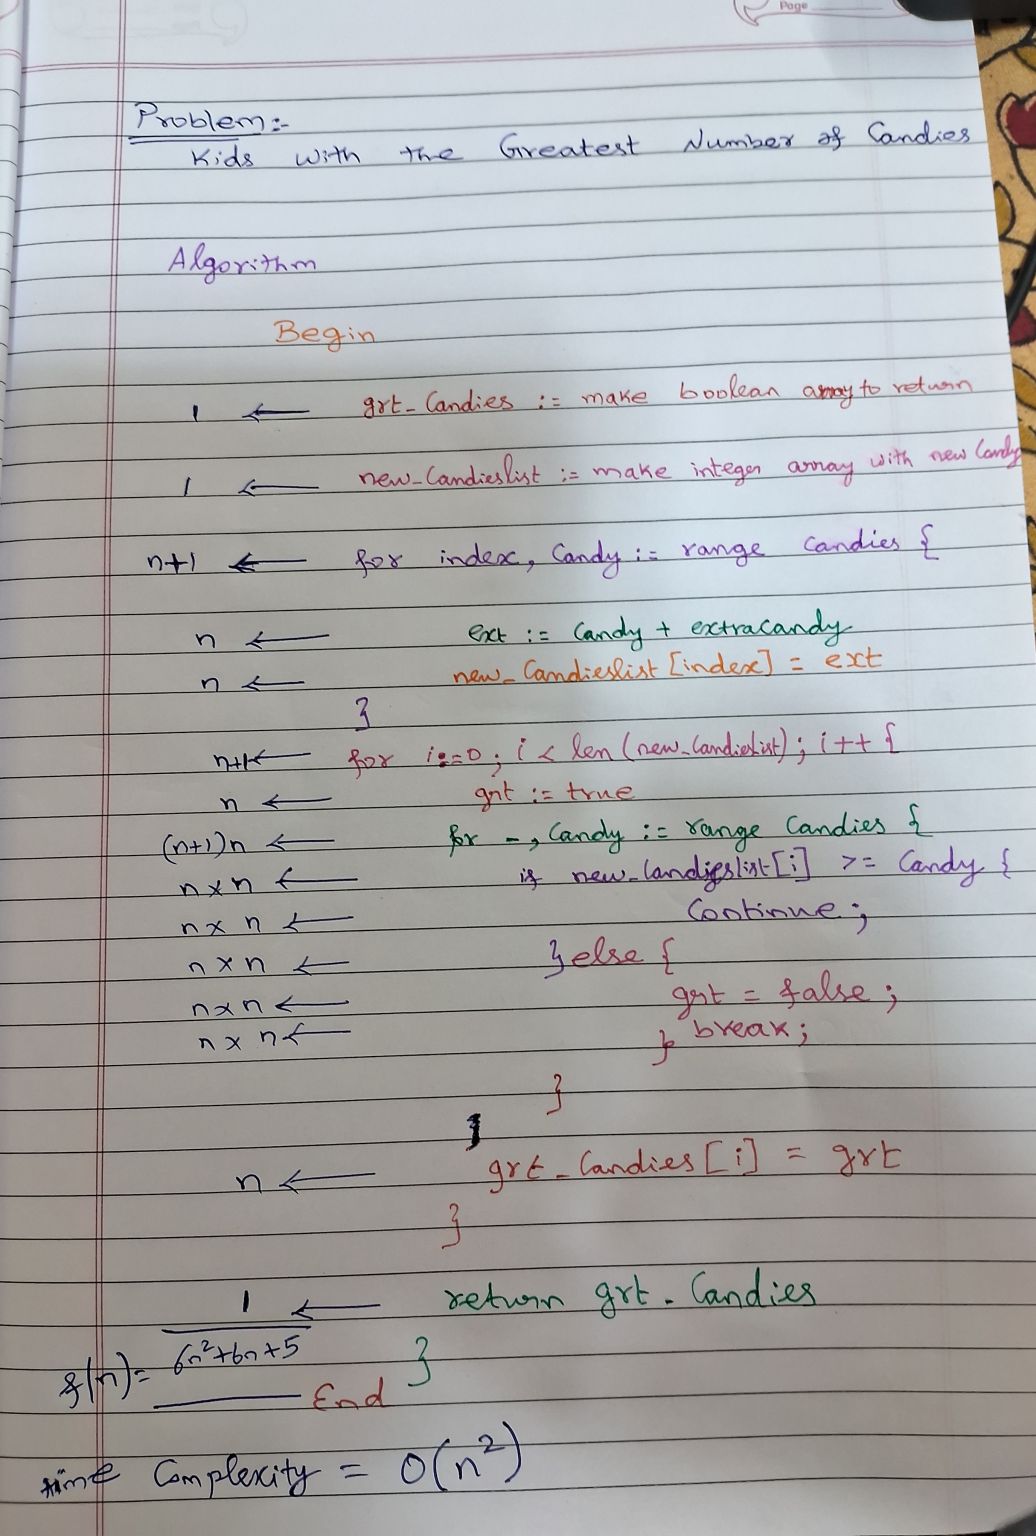 Page
Problem:-
Kids with the Greatest Number of Candies
Algorithm
Begin
1 ← grt_Candies := make boolean array to return
1 ← new_Candieslist := make integer array with new Candy
n+1 ← for index, Candy := range candies {
n ← ext := Candy + extracandy
n ← new_Candieslist [index] = ext
}
n+1 ← for i:=0; i < len (new_Candieslist); i++ {
n ← grt := true
(n+1)n ← for _, Candy := range Candies {
n×n ← if new_Candieslist[i] >= Candy {
n×n ← Continue;
n×n ← } else {
n×n ← grt = false;
n×n ← break;
}
}
}
n ← grt_Candies [i] = grt
}
1 ← return grt_Candies
f(n) = 6n²+6n+5 }
End
time Complexity = O(n²)